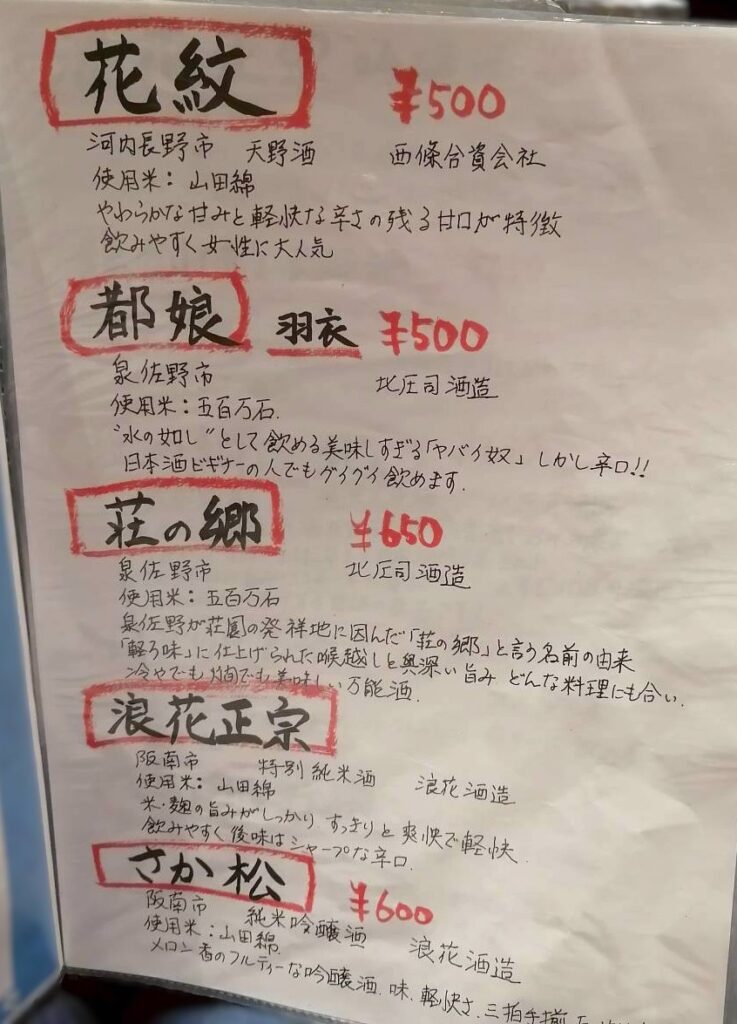 花紋 ¥500
河内長野市 天野酒 西條合資会社
使用米：山田綿
やわらかな甘みと軽快な辛さの残る甘口が特徴
飲みやすく女性に大人気
都娘 羽衣 ¥500
泉佐野市 北庄司酒造
使用米：五百万石.
"水の如し"として飲める美味しすぎる「ヤバイ奴」しかし辛口!!
日本酒ビギナーの人でもグイグイ飲めます.
荘の郷 ¥650
泉佐野市 北庄司酒造
使用米：五百万石
泉佐野が荘園の発祥地に因んだ「荘の郷」と言う名前の由来
「軽ろ味」に仕上げられた喉越しと奥深い旨み どんな料理にも合い.
冷やでも燗でも美味しい万能酒.
浪花正宗
阪南市 特別純米酒 浪花酒造
使用米：山田綿
米・麹の旨みがしっかり すっきりと爽快で軽快
飲みやすく後味はシャープな辛口.
さか松 ¥600
阪南市 純米吟醸酒 浪花酒造
使用米：山田綿.
メロン香のフルティーな吟醸酒.味.軽快さ.三拍手揃